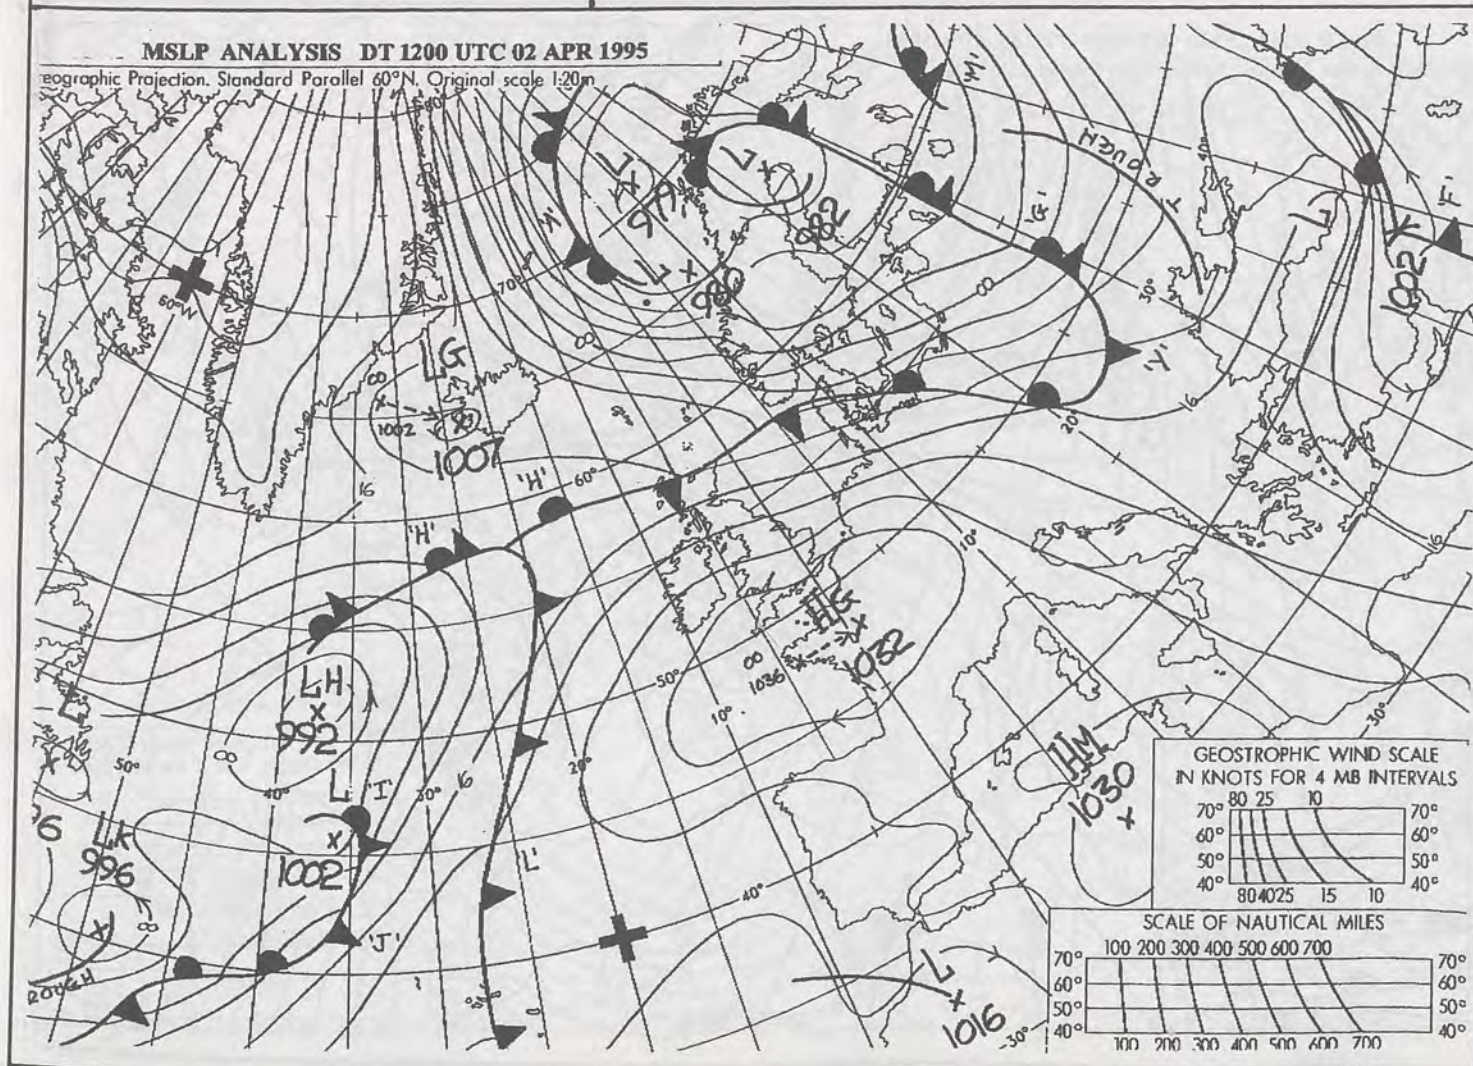 MSLP ANALYSIS DT 1200 UTC 02 APR 1995
eographic Projection. Standard Parallel 60°N. Original scale 1:20m
'M'
TROUGH
40°
'F'
L
L
982
'G'
L
1002
60°W
70°
L
980
00
30°
'Y'
LG
00
1002
1007
16
20°
16
'H'
60°
'H'
10°
16
HG
1032
00
1036
50°
10°
LH
992
00
50°
40°
L
'I'
30°
16
20°
HM
1030
30°
96
LK
996
1002
'L'
40°
'J'
ROUGH
L
1016
30°
GEOSTROPHIC WIND SCALE
IN KNOTS FOR 4 MB INTERVALS
80 25 10
70° 70°
60° 60°
50° 50°
40° 40°
80 40 25 15 10
SCALE OF NAUTICAL MILES
100 200 300 400 500 600 700
70° 70°
60° 60°
50° 50°
40° 40°
100 200 300 400 500 600 700